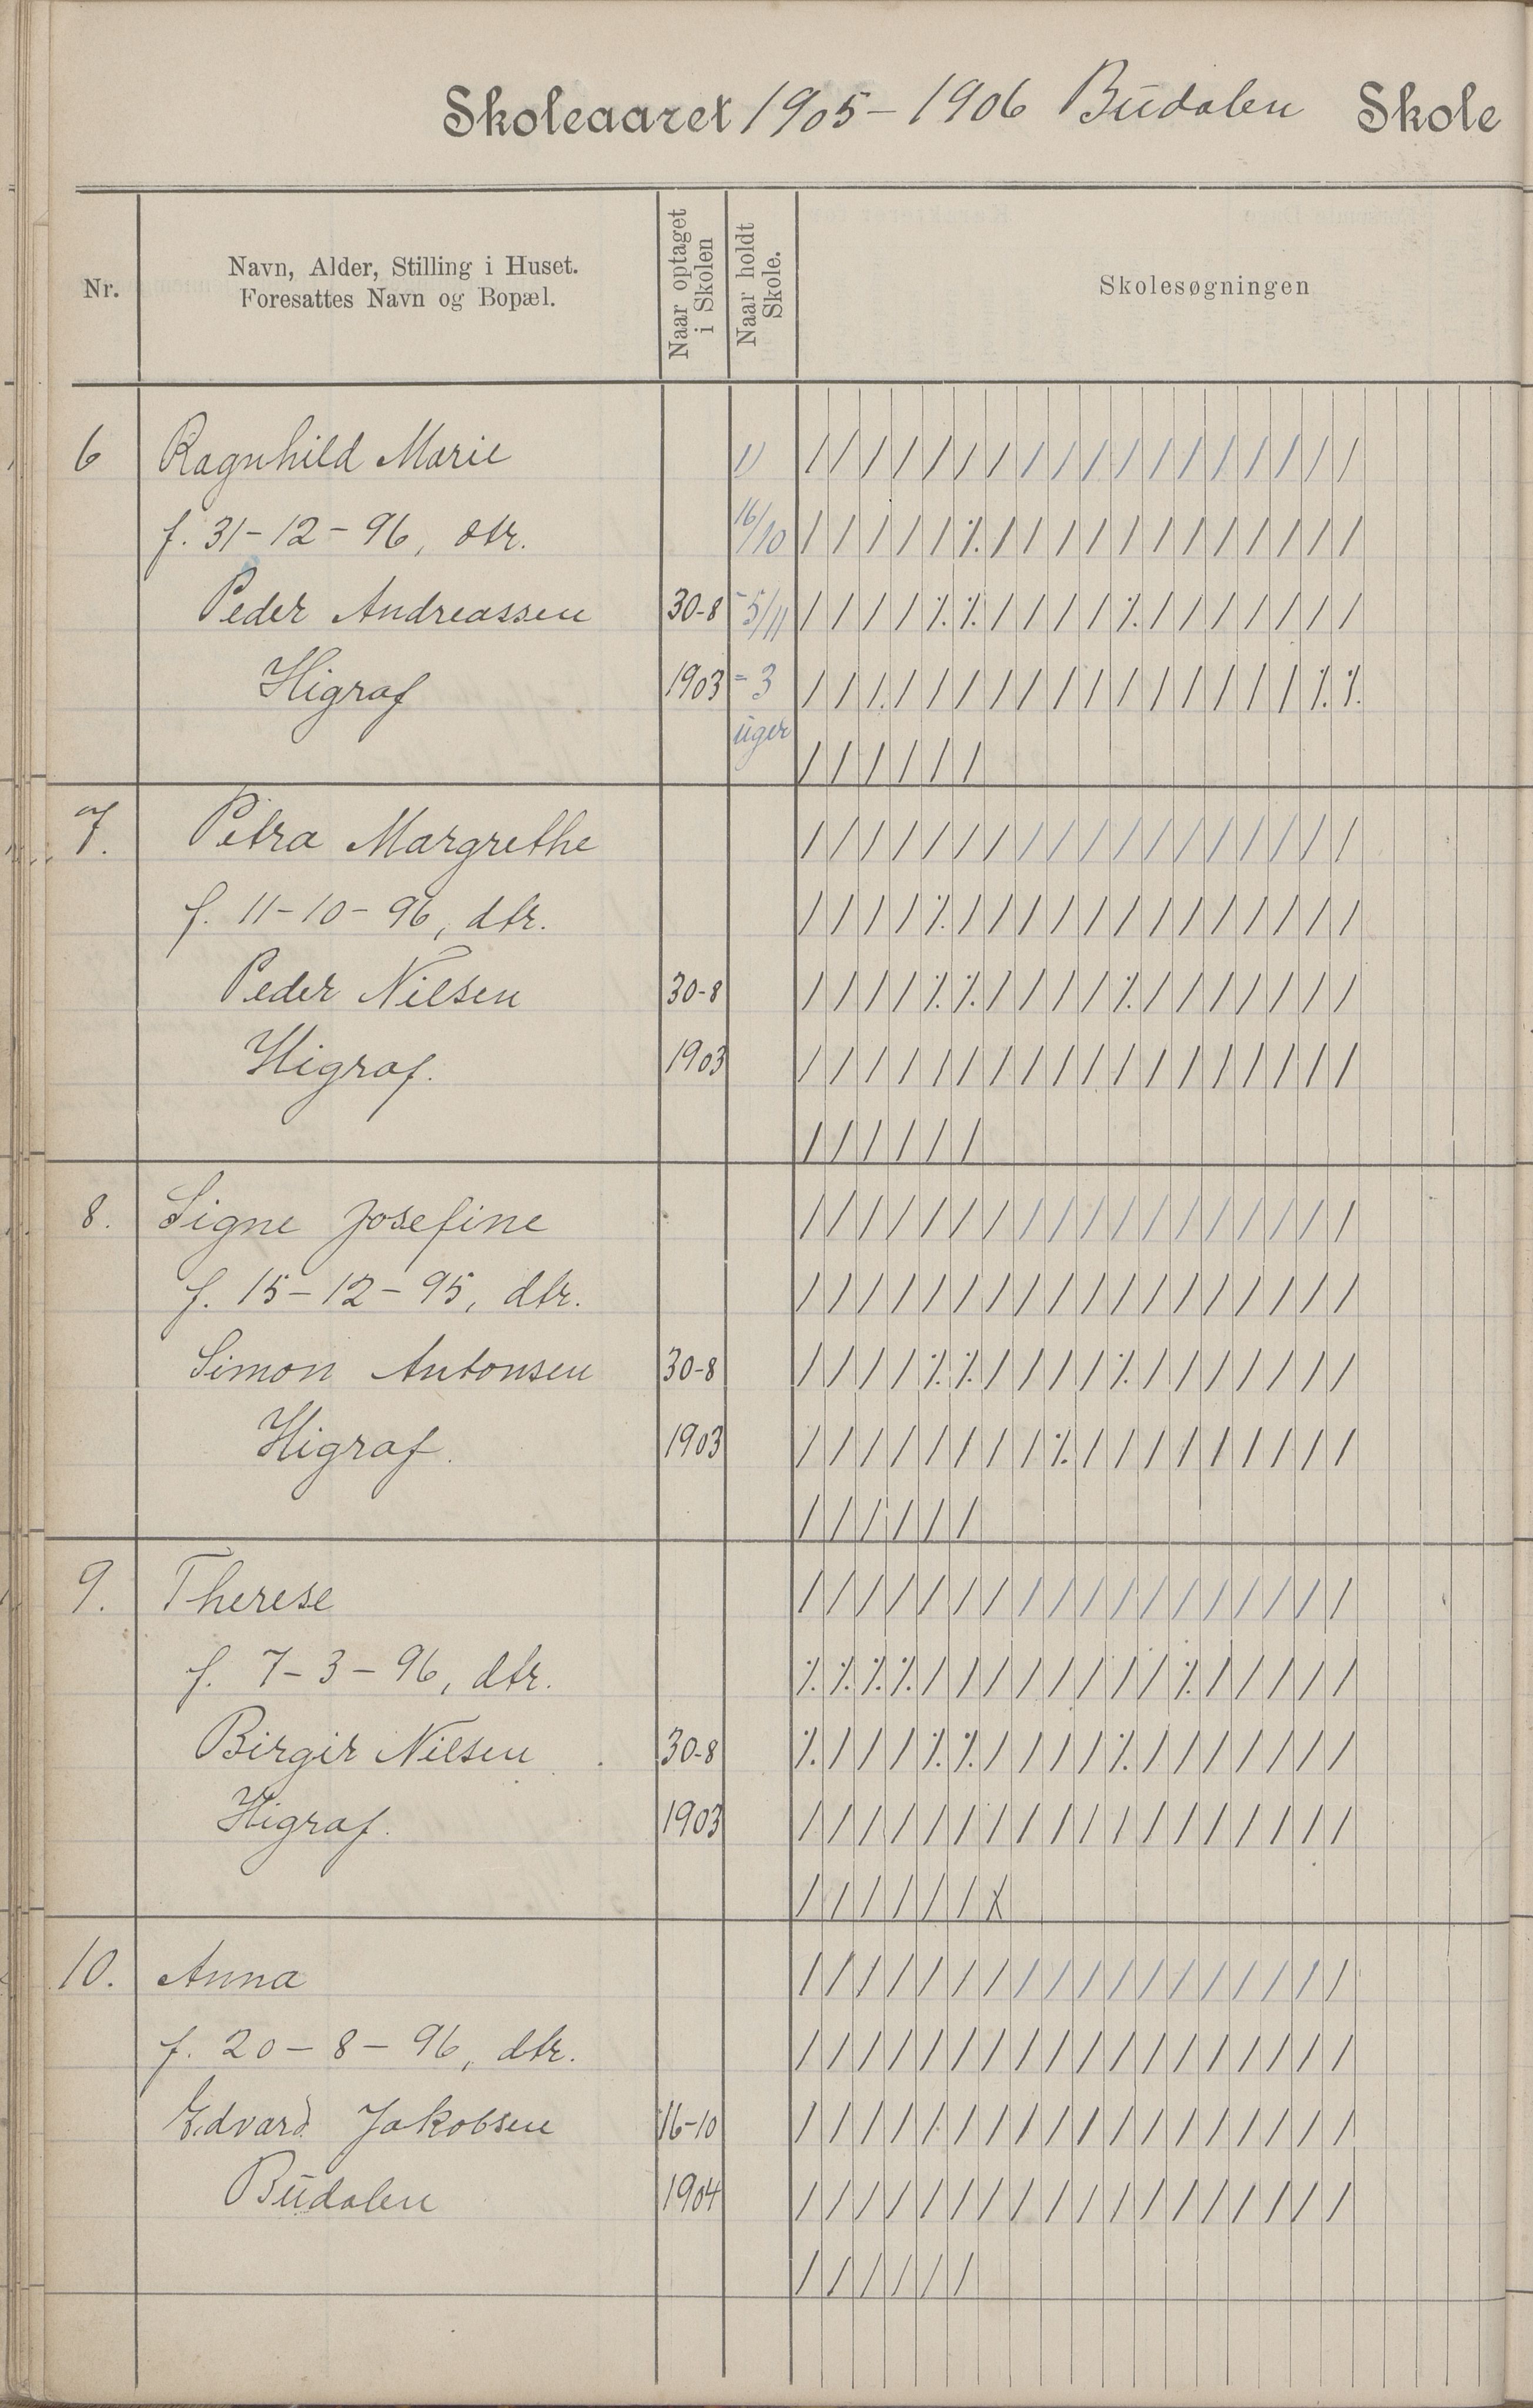 Skoleaaret 1905 - 1906 Budalen Skole
Nr.
Navn, Alder, Stilling i Huset.
Foresattes Navn og Bopæl.
Naar optaget
i Skolen
Naar holdt
Skole.
Skolesøgningen
6 Ragnhild Marie 1)
f. 31-12-96, dtr. 16/10
Peder Andreassen 30-8 -5/11
Higraf 1903 = 3
uger
7. Petra Margrethe
f. 11-10-96, dtr.
Peder Nilsen 30-8
Higraf. 1903
8. Signe Josefine
f. 15-12-95, dtr.
Simon Antonsen 30-8
Higraf. 1903
9. Therese
f. 7-3-96, dtr.
Birgir Nilsen 30-8
Higraf. 1903
10. Anna
f. 20-8-96, dtr.
Edvard Jakobsen 16-10
Budalen 1904